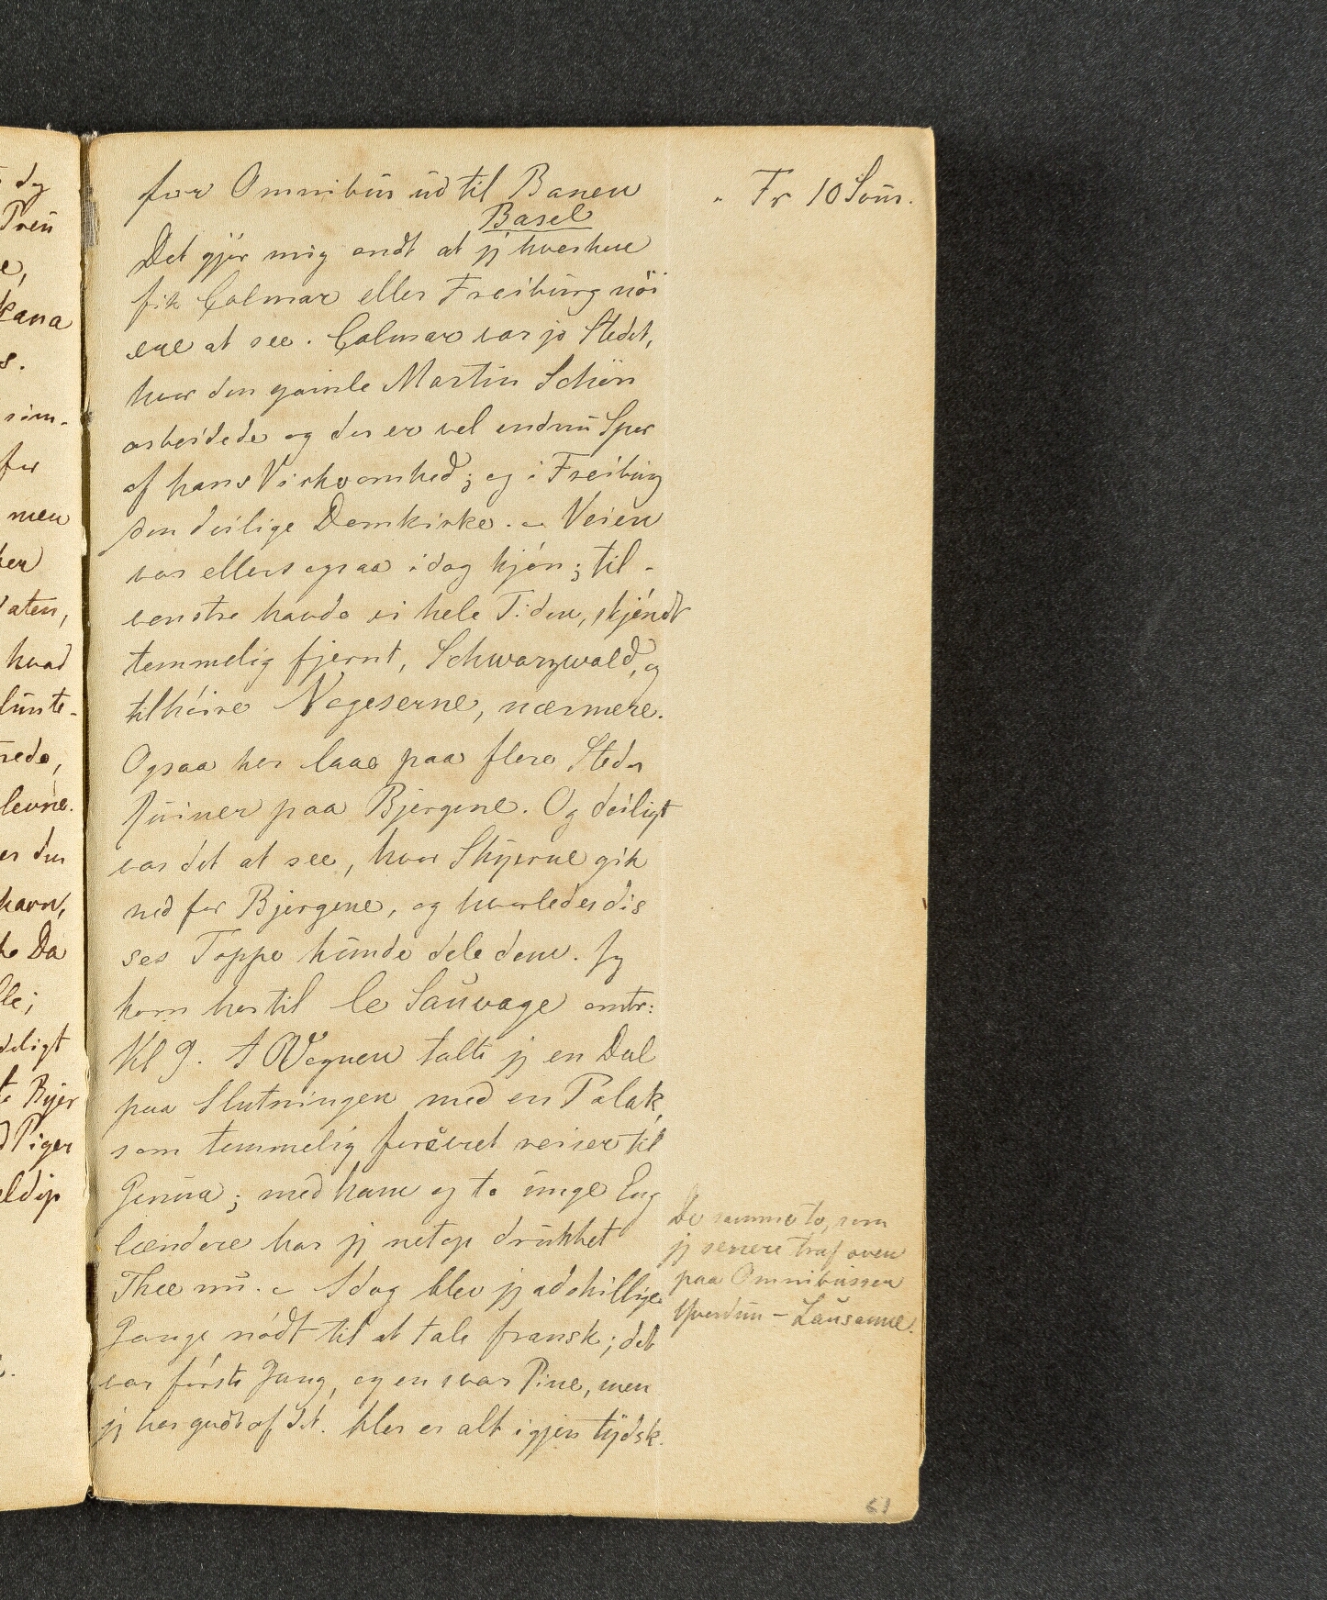 for Omnibus ud til Banen
- Fr 10 Sous.
Basel
Det gjør mig ondt at jeg hverken
fik Colmar eller Freiburg nöi
ere at see. Colmar var jo Stedet,
hvor den gamle Martin Schön
arbeidede og der er vel endnu Spor
af hans Virksomhed; og i Freiburg
den deilige Domkirke. - Veien
var ellers ogsaa idag kjön; til-
venstre havde vi hele Tiden, skjöndt
temmelig fjernt, Schwarzwald, og
tilhöire Vogeserne, nærmere.
Ogsaa her laae paa flere Steder
Ruiner paa Bjergene. Og deiligt
var det at see, hvor Skyerne gik
ned for Bjergene, og hvorledes dis
ses Toppe kunde dele dem. Jeg
kom her til le Sauvage omtr:
Kl 9. I Vognen talte jeg en Deel
paa Slutningen med en Polak,
som temmelig forövret reiser til
Genua; med ham og to unge Eng
lændere har jeg netop drukket
Thee nu. - Idag blev jeg adskillige
Gange nödt til at tale fransk; det
var förste Gang, og en svær Pine, men
jeg har godt af det. Her er alt igjen tydsk.
De samme to, som
jeg senere traf oven
paa Omnibussen
Yverdun - Lausanne.
61
Preu
e,
kana
s.
som-
for
men
aten,
hvad
lunte-
rede,
levne.
er den
havn,
Da
lle;
deligt
Bjer
Piger